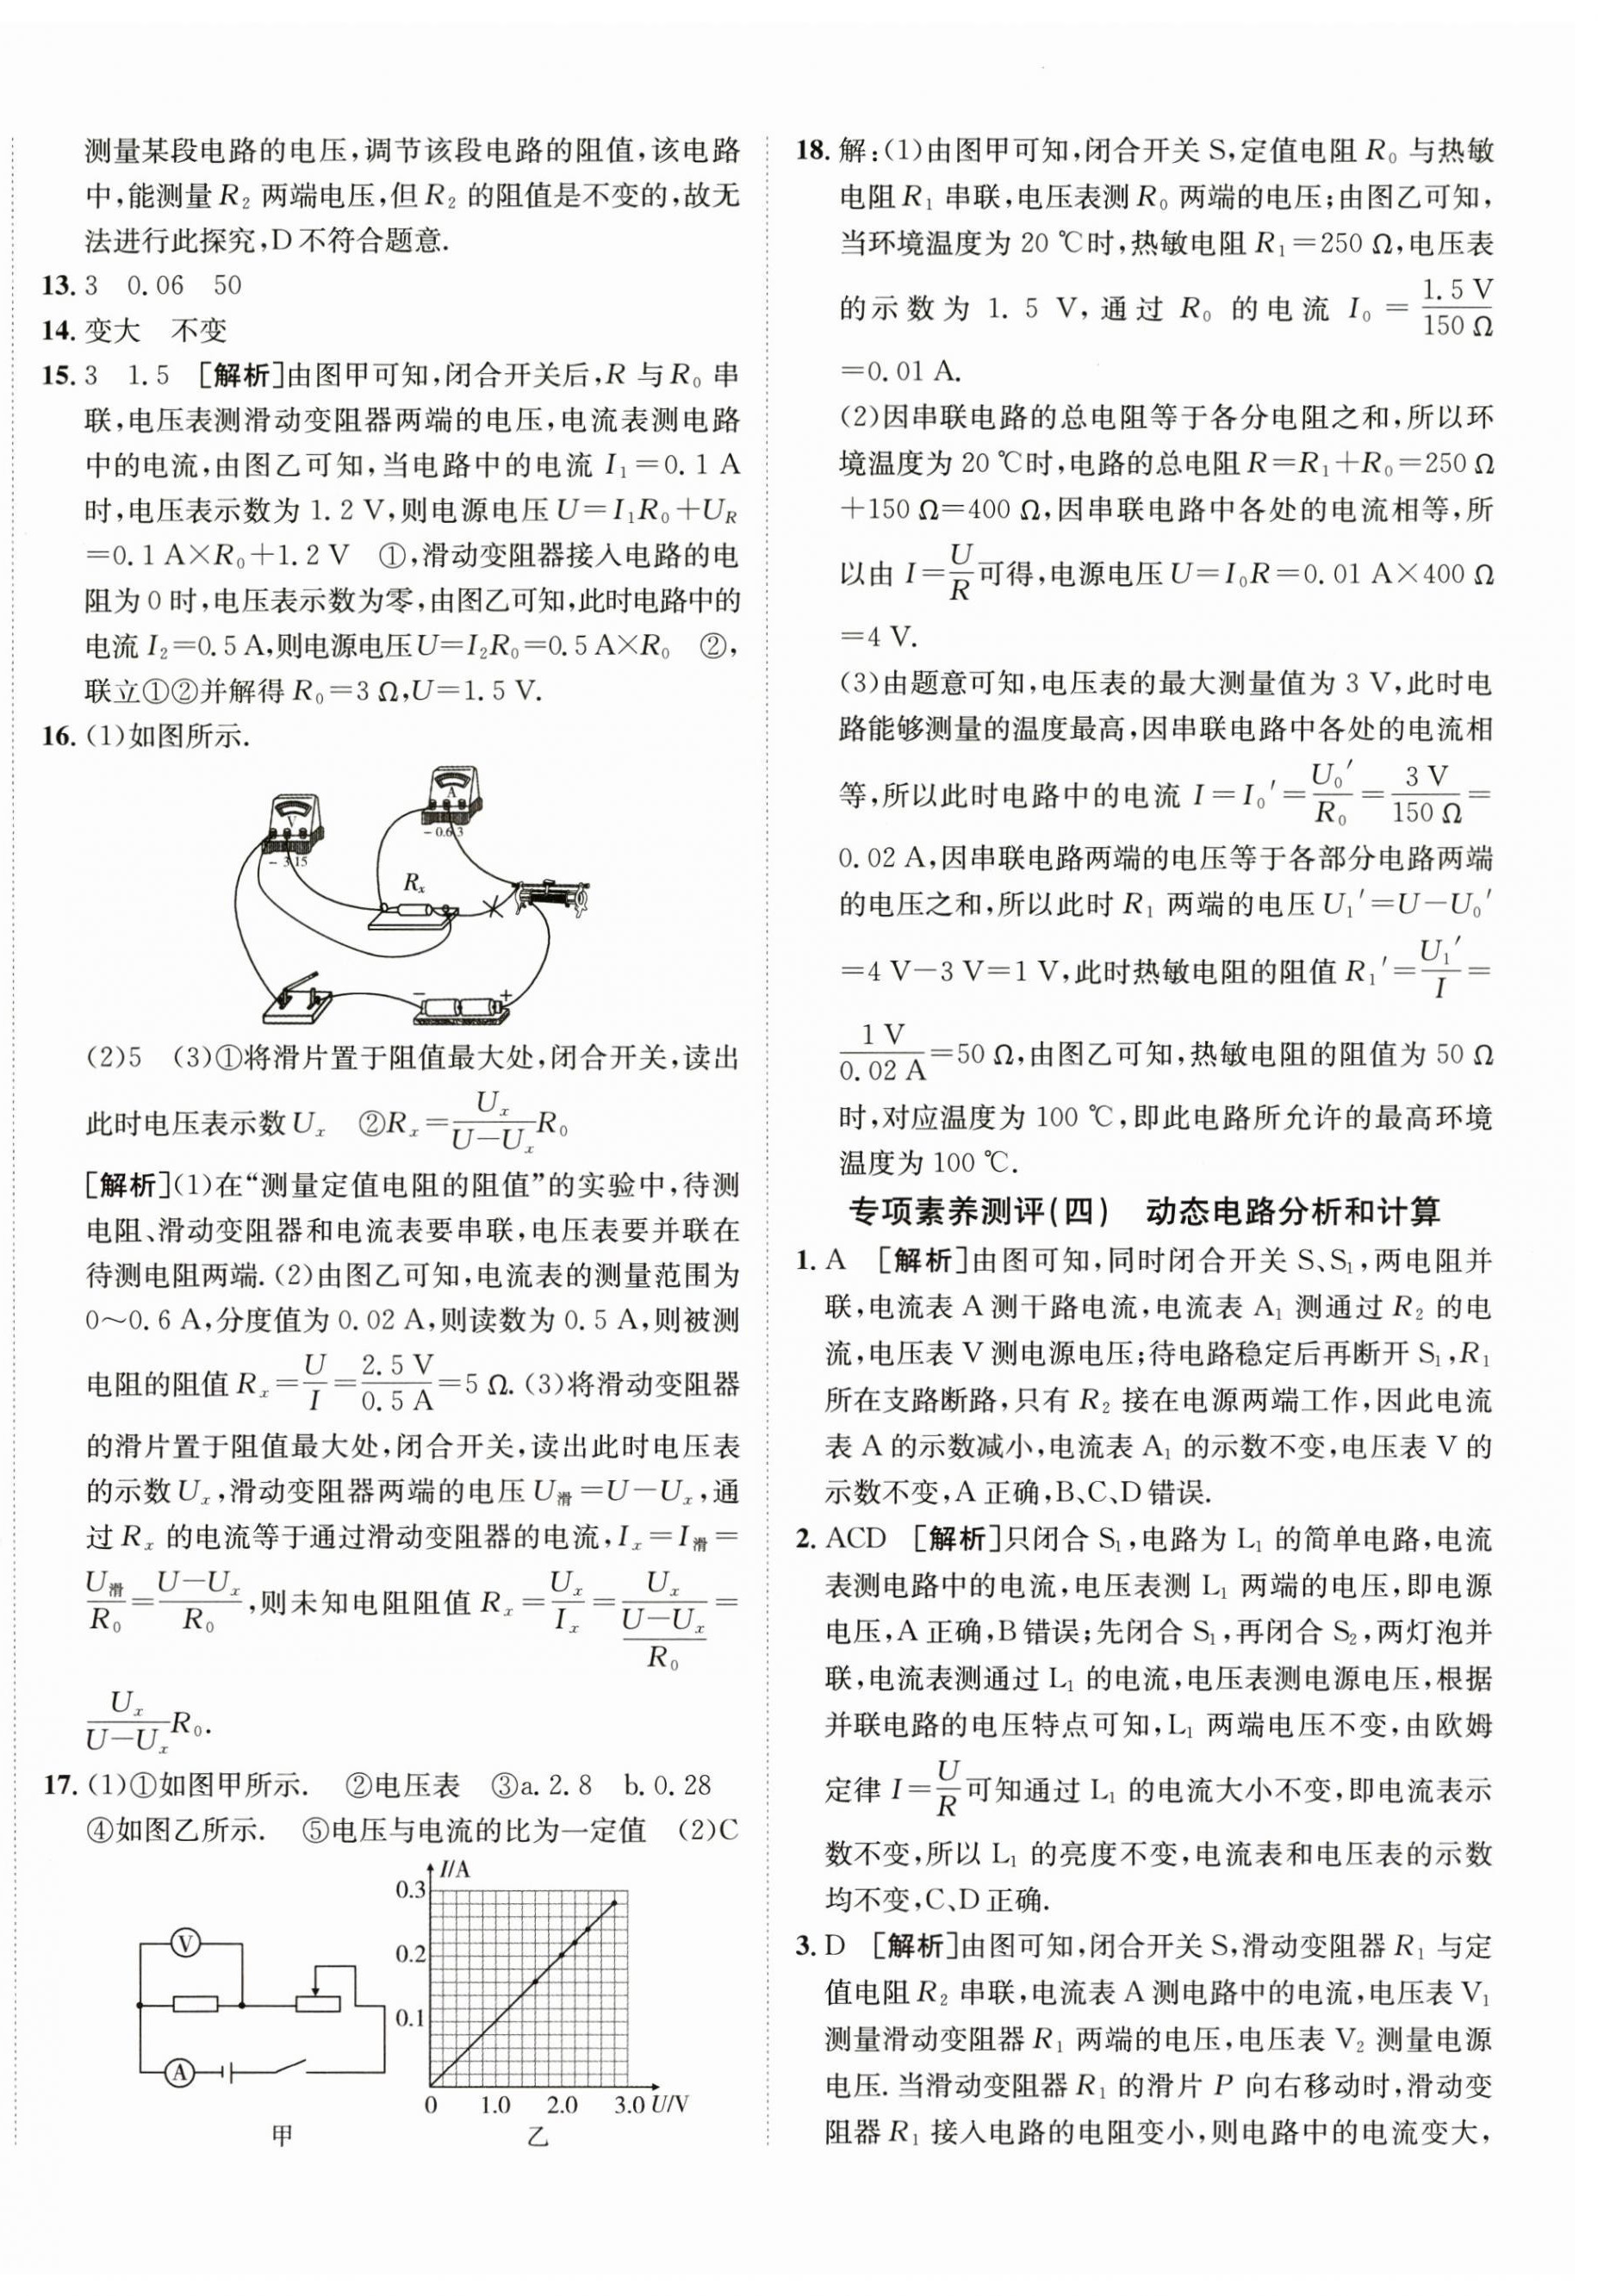 测量某段电路的电压,调节该段电路的阻值,该电路
中,能测量 R₂ 两端电压,但 R₂ 的阻值是不变的,故无
法进行此探究,D 不符合题意.
13. 3 0.06 50
14. 变大 不变
15. 3 1.5 [解析]由图甲可知,闭合开关后,R 与 R₀ 串
联,电压表测滑动变阻器两端的电压,电流表测电路
中的电流,由图乙可知,当电路中的电流 I₁=0.1 A
时,电压表示数为 1.2 V,则电源电压 U=I₁R₀+U_R
=0.1 A×R₀+1.2 V ①,滑动变阻器接入电路的电
阻为 0 时,电压表示数为零,由图乙可知,此时电路中的
电流 I₂=0.5 A,则电源电压 U=I₂R₀=0.5 A×R₀ ②,
联立①②并解得 R₀=3 Ω,U=1.5 V.
16. (1)如图所示.
A
V
- 0.6 3
- 3 15
Rₓ
- +
(2)5 (3)①将滑片置于阻值最大处,闭合开关,读出
此时电压表示数 Uₓ ②Rₓ=Uₓ/(U-Uₓ)R₀
[解析](1)在“测量定值电阻的阻值”的实验中,待测
电阻、滑动变阻器和电流表要串联,电压表要并联在
待测电阻两端.(2)由图乙可知,电流表的测量范围为
0~0.6 A,分度值为 0.02 A,则读数为 0.5 A,则被测
电阻的阻值 Rₓ=U/I=2.5 V/0.5 A=5 Ω.(3)将滑动变阻器
的滑片置于阻值最大处,闭合开关,读出此时电压表
的示数 Uₓ,滑动变阻器两端的电压 U滑=U-Uₓ,通
过 Rₓ 的电流等于通过滑动变阻器的电流,Iₓ=I滑=
U滑/R₀=(U-Uₓ)/R₀,则未知电阻阻值 Rₓ=Uₓ/Iₓ=Uₓ/((U-Uₓ)/R₀)=
Uₓ/(U-Uₓ)R₀.
17. (1)①如图甲所示. ②电压表 ③a.2.8 b.0.28
④如图乙所示. ⑤电压与电流的比为一定值 (2)C
V
A
甲
I/A
0.3
0.2
0.1
0 1.0 2.0 3.0 U/V
乙
18. 解:(1)由图甲可知,闭合开关 S,定值电阻 R₀ 与热敏
电阻 R₁ 串联,电压表测 R₀ 两端的电压;由图乙可知,
当环境温度为 20 ℃时,热敏电阻 R₁=250 Ω,电压表
的示数为 1.5 V,通过 R₀ 的电流 I₀=1.5 V/150 Ω
=0.01 A.
(2)因串联电路的总电阻等于各分电阻之和,所以环
境温度为 20 ℃时,电路的总电阻 R=R₁+R₀=250 Ω
+150 Ω=400 Ω,因串联电路中各处的电流相等,所
以由 I=U/R可得,电源电压 U=I₀R=0.01 A×400 Ω
=4 V.
(3)由题意可知,电压表的最大测量值为 3 V,此时电
路能够测量的温度最高,因串联电路中各处的电流相
等,所以此时电路中的电流 I=I₀′=U₀′/R₀=3 V/150 Ω=
0.02 A,因串联电路两端的电压等于各部分电路两端
的电压之和,所以此时 R₁ 两端的电压 U₁′=U-U₀′
=4 V-3 V=1 V,此时热敏电阻的阻值 R₁′=U₁′/I=
1 V/0.02 A=50 Ω,由图乙可知,热敏电阻的阻值为 50 Ω
时,对应温度为 100 ℃,即此电路所允许的最高环境
温度为 100 ℃.
专项素养测评(四) 动态电路分析和计算
1. A [解析]由图可知,同时闭合开关 S、S₁,两电阻并
联,电流表 A 测干路电流,电流表 A₁ 测通过 R₂ 的电
流,电压表 V 测电源电压;待电路稳定后再断开 S₁,R₁
所在支路断路,只有 R₂ 接在电源两端工作,因此电流
表 A 的示数减小,电流表 A₁ 的示数不变,电压表 V 的
示数不变,A 正确,B、C、D 错误.
2. ACD [解析]只闭合 S₁,电路为 L₁ 的简单电路,电流
表测电路中的电流,电压表测 L₁ 两端的电压,即电源
电压,A 正确,B 错误;先闭合 S₁,再闭合 S₂,两灯泡并
联,电流表测通过 L₁ 的电流,电压表测电源电压,根据
并联电路的电压特点可知,L₁ 两端电压不变,由欧姆
定律 I=U/R可知通过 L₁ 的电流大小不变,即电流表示
数不变,所以 L₁ 的亮度不变,电流表和电压表的示数
均不变,C、D 正确.
3. D [解析]由图可知,闭合开关 S,滑动变阻器 R₁ 与定
值电阻 R₂ 串联,电流表 A 测电路中的电流,电压表 V₁
测量滑动变阻器 R₁ 两端的电压,电压表 V₂ 测量电源
电压.当滑动变阻器 R₁ 的滑片 P 向右移动时,滑动变
阻器 R₁ 接入电路的电阻变小,则电路中的电流变大,